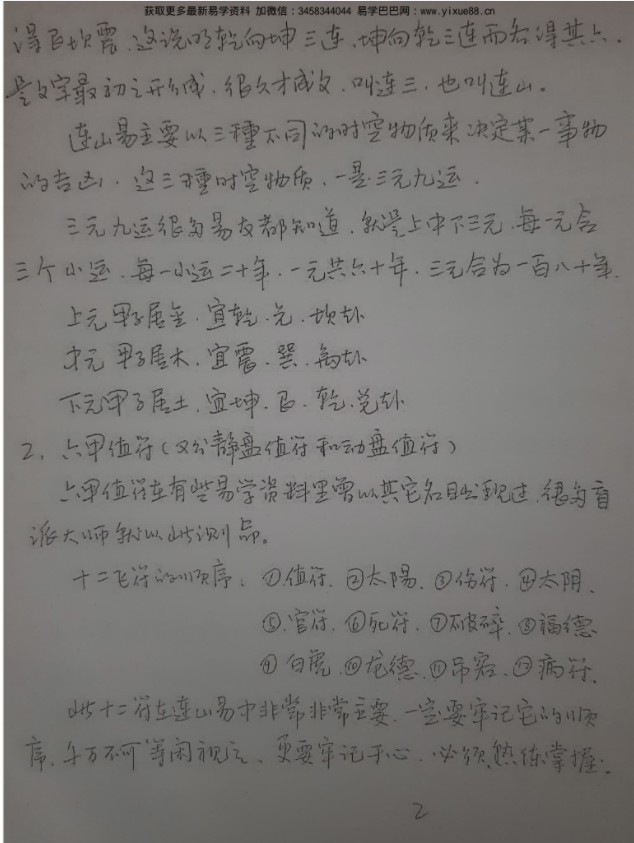 获取更多最新易学资料 加微信：3458344044 易学巴巴网：www.yixue88.cn
得艮坎震．这说明乾向坤三连．坤向乾三连而各得其六．
是文字最初之形成，很久才成文，叫连三，也叫连山。
连山易主要以三種不同的时空物质来决定某一事物
的吉凶．这三種时空物质．一是三元九运．
三元九运很多易友都知道，就是上中下三元．每一元含
三个小运．每一小运二十年．一元共六十年．三元合为一百八十年．
上元甲子居金．宜乾．兑．坎卦
中元甲子居木．宜震．巽．离卦
下元甲子居土．宜坤．艮．乾．兑卦
2、六甲值符（又分静盘值符和动盘值符）
六甲值符在有些易学资料里曾以其它名目出现过，很多盲
派大师就以此识别 。
十二飞符的顺序：①值符．②太陽．③伤符．④太阴．
⑤．官符．⑥死符．⑦破碎．⑧福德
⑨白虎．⑩龙德．⑪吊客．⑫病符．
此十二符在连山易中非常非常主要．一定要牢记它的顺
序．千万不可等闲视之．更要牢记于心．必须熟练掌握．
2